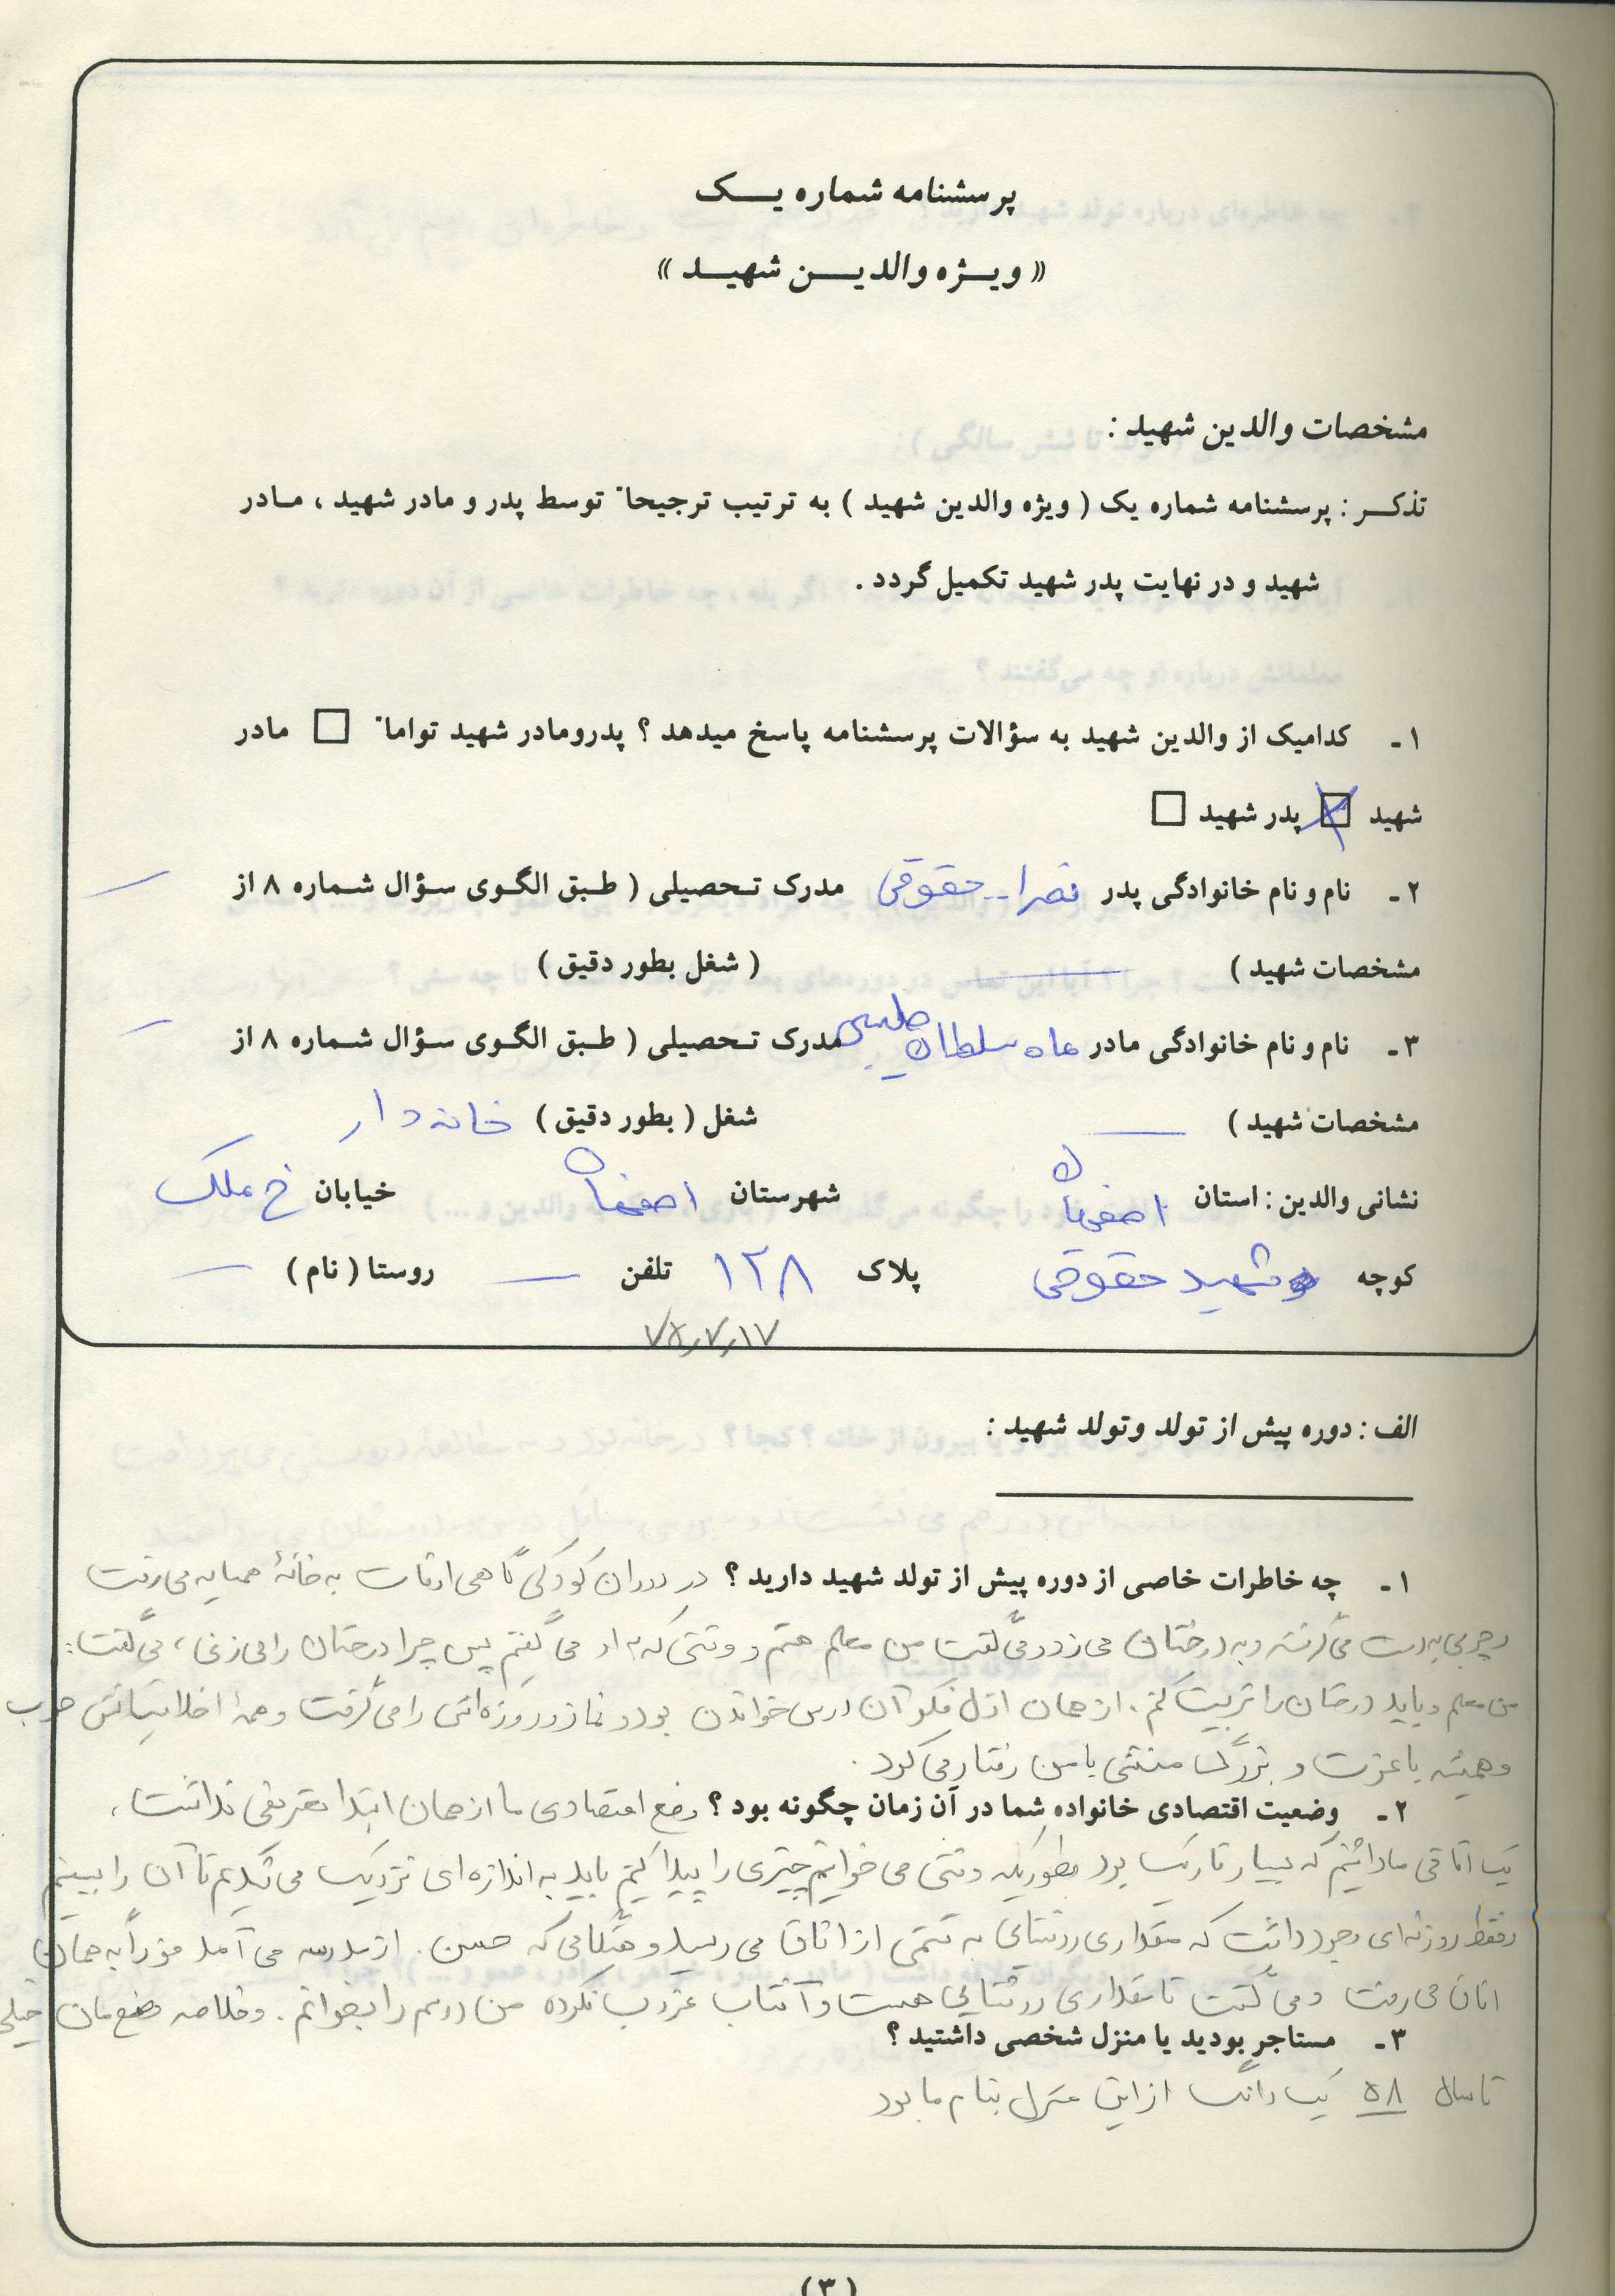 پرسشنامه شماره یک
« ویژه والدین شهید »
مشخصات والدین شهید :
تذکر : پرسشنامه شماره یک ( ویژه والدین شهید ) به ترتیب ترجیحاً توسط پدر و مادر شهید ، مادر
شهید و در نهایت پدر شهید تکمیل گردد .
۱ - کدامیک از والدین شهید به سؤالات پرسشنامه پاسخ میدهد ؟ پدرومادر شهید تواماً □ مادر
شهید ☒ پدر شهید □
۲ - نام و نام خانوادگی پدر نصرا.. حقوقی مدرک تحصیلی ( طبق الگوی سؤال شماره ۸ از —
مشخصات شهید ) — ( شغل بطور دقیق )
۳ - نام و نام خانوادگی مادر ماه سلطان مدرک تحصیلی ( طبق الگوی سؤال شماره ۸ از —
مشخصات شهید ) — شغل ( بطور دقیق ) خانه دار
نشانی والدین : استان اصفهان شهرستان اصفهان خیابان خ ملک
کوچه شهید حقوقی پلاک ۱۲۸ تلفن — روستا ( نام ) —
۷۸٫۷٫۱۷
الف : دوره پیش از تولد وتولد شهید :
۱ - چه خاطرات خاصی از دوره پیش از تولد شهید دارید ؟ در دوران کودکی گاهی اوقات به خانهٔ همسایه می رفت
و چوبی بدست می گرفت و به درختان می زد و می گفت من معلم هستم و وقتی که به او می گفتم پس چرا درختان را می زنی ، می گفت :
من معلم و باید درختان را تربیت کنم . از همان اول فکر آن درس خواندن بود و نماز و روزه اش را می گرفت و همهٔ اخلاقیاتش خوب
و همیشه با عزت و بزرگ منشی با من رفتار می کرد .
۲ - وضعیت اقتصادی خانواده شما در آن زمان چگونه بود ؟ وضع اقتصادی ما از همان ابتدا تعریفی نداشت ،
یک اتاقی ما داشتیم که بسیار تاریک بود بطوریکه وقتی می خواستیم چیزی را پیدا کنیم باید به اندازه ای نزدیک می شدیم تا آن را ببینیم
و فقط روزنه ای وجود داشت که مقداری روشنایی به قسمتی از اتاق می رسید و هنگامی که حسن . از مدرسه می آمد فوراً به همان
اتاق می رفت و می گفت تا مقداری روشنایی هست و آفتاب غروب نکرده من درسم را بخوانم . و خلاصه وضع مان خیلی
۳ - مستاجر بودید یا منزل شخصی داشتید ؟
تا سال ۵۸ یک دانگ از این منزل بنام ما بود
( ۳ )